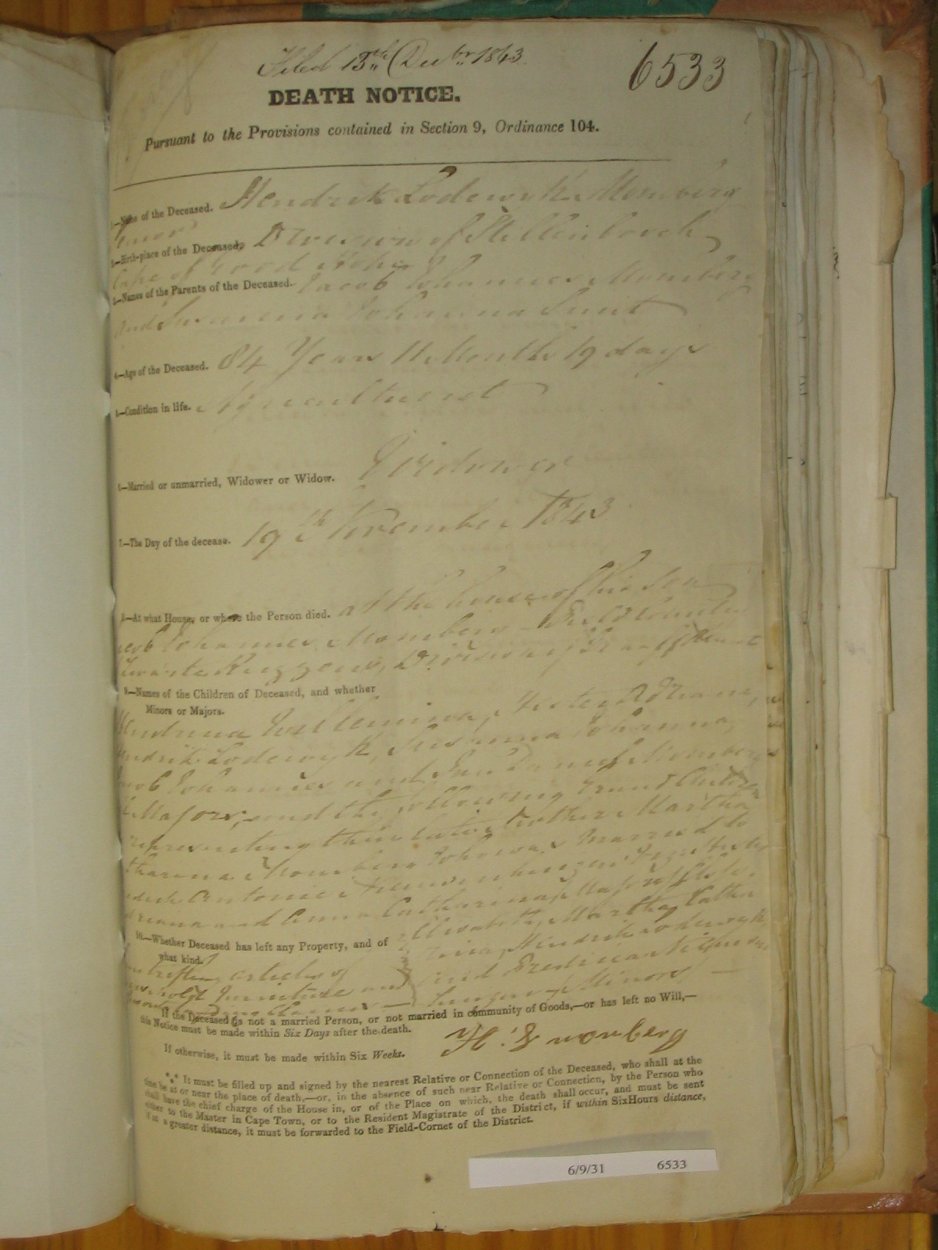 Filed 13th Decbr 1843
6533
DEATH NOTICE.
Pursuant to the Provisions contained in Section 9, Ordinance 104.
1.—Name of the Deceased. Hendrik Lodewyk Momberg
Senior
2.—Birth-place of the Deceased. Division of Stellenbosch
Cape of Good Hope
3.—Names of the Parents of the Deceased. Jacob Johannes Momberg
and Susanna Johanna Smit
4.—Age of the Deceased. 84 Years 11 Months 19 days
5.—Condition in life. Agriculturist
6.—Married or unmarried, Widower or Widow. Widower
7.—The Day of the decease. 19th November 1843
8.—At what House, or where the Person died. at the house of his Son
Jacob Johannes Momberg
Zwarte Ruggens, Division of
9.—Names of the Children of Deceased, and whether
Minors or Majors.
Hendrina Willemina, Hester Adriana,
Hendrik Lodewyk, Susanna Johanna,
Jacob Johannes and Jan Daniel Momberg
Majors, and the following Grand Children
representing their late Mother Martha
Catharina Momberg who was married to
Adriana and Anna Catharina, Majors
Elisabeth, Martha Catha
rina, Hendrik Lodewyk
10.—Whether Deceased has left any Property, and of
what kind.
articles of
household furniture and
and Fredrica
Minors
If the Deceased is not a married Person, or not married in community of Goods,—or has left no Will,—
this Notice must be made within Six Days after the death.
H. L. Momberg
If otherwise, it must be made within Six Weeks.
*** It must be filled up and signed by the nearest Relative or Connection of the Deceased, who shall at the
time be at or near the place of death,—or, in the absence of such near Relative or Connection, by the Person who
shall have the chief charge of the House in, or of the Place on which, the death shall occur, and must be sent
either to the Master in Cape Town, or to the Resident Magistrate of the District, if within Six Hours distance,
if at a greater distance, it must be forwarded to the Field-Cornet of the District.
6/9/31 6533